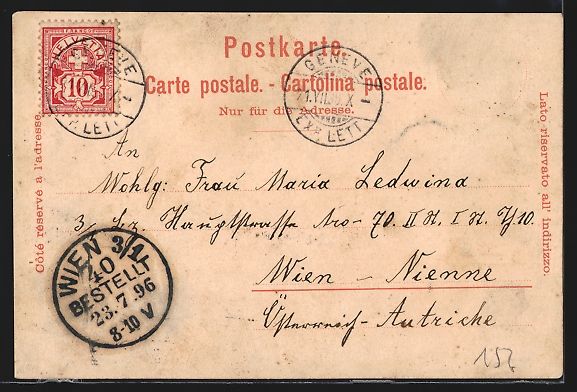 FRANCO
HELVETIA
10
GENÈVE
1
EXP. LETT.
Postkarte.
Carte postale. - Cartolina postale.
Nur für die Adresse.
GENÈVE
1
EXP. LETT.
Côté réservé à l'adresse.
Lato riservato all' indirizzo.
An
Wohlg: Frau Maria Ledwina
3/ Hauptstrasse Nro- 70. II St. I St. Th 10.
Wien - Vienne
Österreich - Autriche
WIEN 3/1
40
BESTELLT
23.7.96
8-10 V
152